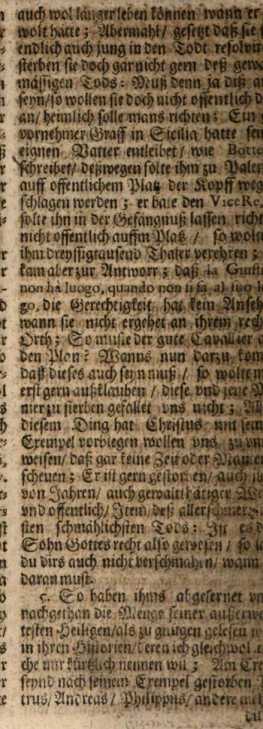 auch wol länger leben können wann er
wolt hatte; Abermahl/ gesetzt daß sie s
endlich auch jung in den Todt resolvir
sterben sie doch gar nicht gern deß gewo
mässigen Tods: Muß denn ja diß a
seyn/ so wollen sie doch nicht offentlich d
an/ heimlich solle mans richten; Ein
vornehmer Graff in Sicilia hatte sein
eignen Vatter entleibet/ wie Botte
schreibet/ deßwegen solte ihm zu Paler
auff offentlichem Platz der Kopff weg
schlagen werden; er bate den ViceRe,
solte ihn in der Gefängnuß lassen richt
nicht offentlich auffm Platz/ so wolt
ihm dreyssigtausend Thaler verehren;
kam aber zur Antwort; daß la Giusti
non ha luogo, quando non si fa al suo l
go, die Gerechtigkeit hat kein Anseh
wann sie nicht ergehet an ihrem rech
Orth; So muste der gute Cavallier
den Plon? Wanns nun darzu kom
daß dieses auch seyn muß/ so wolte m
erst gern außklauben/ diese und jene
nier zu sterben gefället uns nicht;
diesem Ding hat Christus mit sein
Exempel vorbiegen wollen uns zu
weisen/ daß gar keine Zeit oder
scheuen; Er ist gern gestorben/ auch
von Jahren/ auch gewaltthätiger
und offentlich/ Item deß aller
sten schmählichsten Tods: Ist es d
Sohn Gottes recht also gewesen/ so
du dirs auch nicht verschmahen/ wann
daran must.
5. So haben ihms abgelernet un
nachgethan die Menge seiner ausserwe
testen Heiligen/ als zu gnügen gelesen
in ihren Historien/ deren ich gleichwol
che nur kürtzlich nennen wil; Am Cre
seynd nach seinem Exempel gestorben
trus/ Andreas/ Philippus/ andere